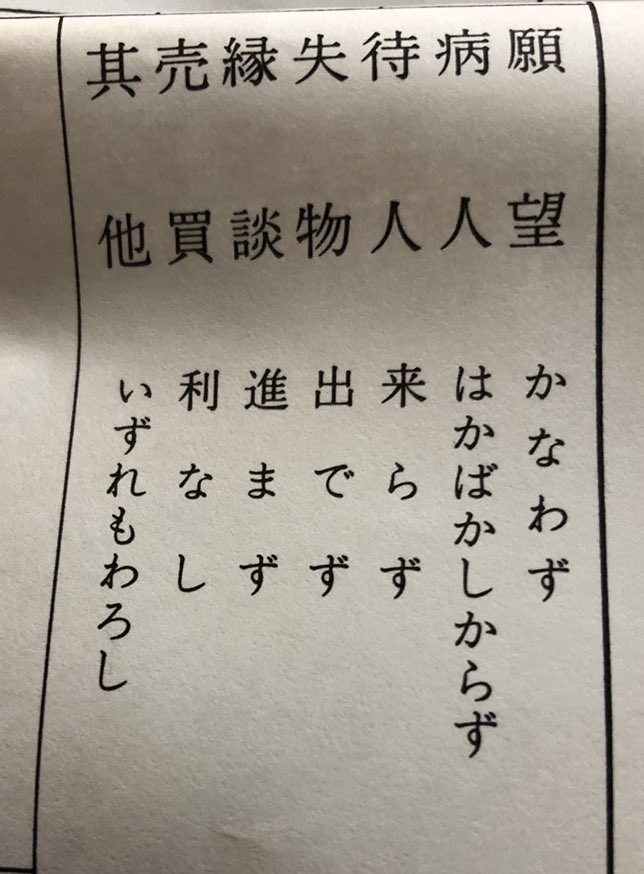 願望 かなわず
病人 はかばかしからず
待人 来らず
失物 出でず
縁談 進まず
売買 利なし
其他 いずれもわろし